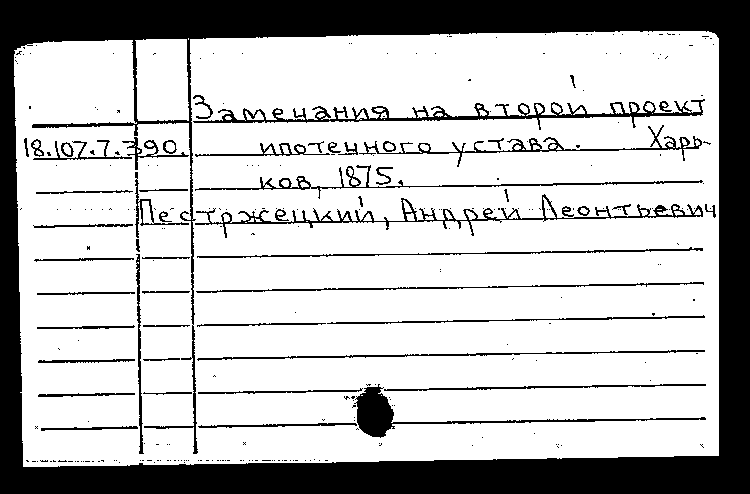 Замечания на второй проект
18.107.7.390. ипотечного устава. Харь-
ков, 1875.
Пестржецкий, Андрей Леонтьевич